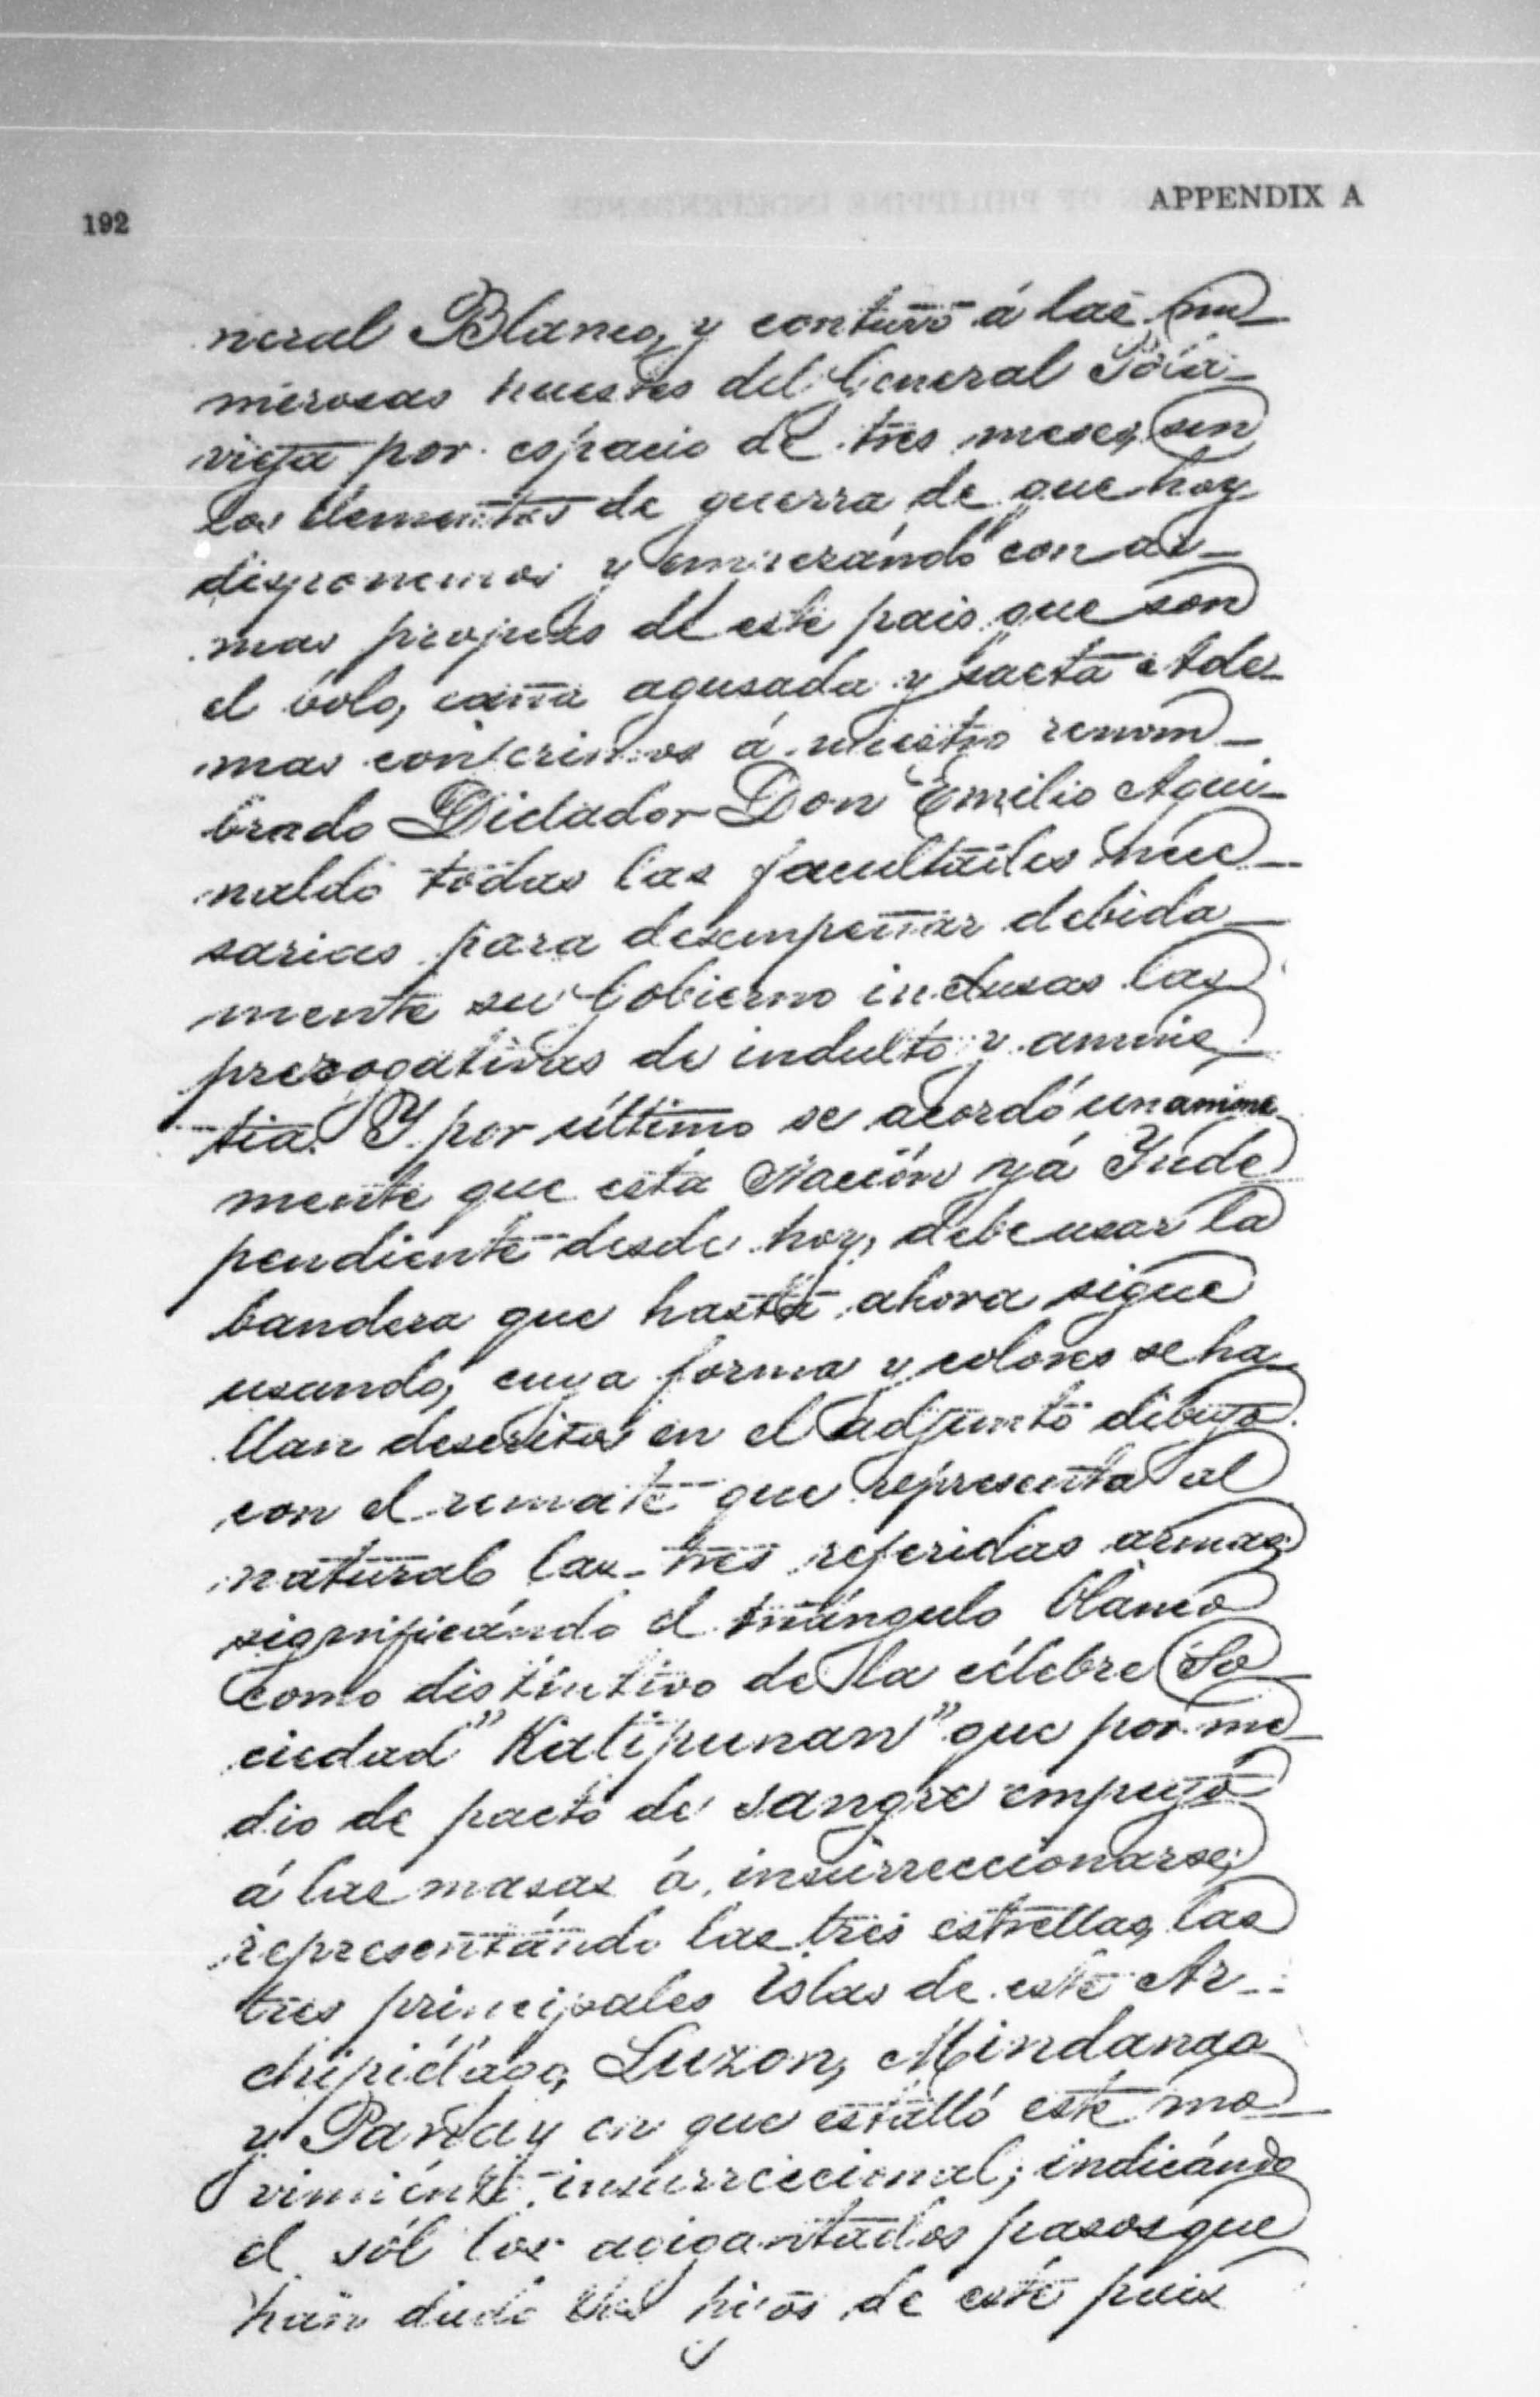 192
APPENDIX A
neral Blanco, y contuvo á las nu-
merosas huestes del General Pola-
vieja por espacio de tres meses, sin
los elementos de guerra de que hoy
disponemos y empezándo con ar-
mas propias de este pais que son
el bolo, caña agusada y saeta Ade-
mas conferimos á nuestro renom-
brado Dictador Don Emilio Agui-
naldo todas las facultades nece-
sarias para desempeñar debida-
mente su Gobierno inclusas las
prerogativas de indulto y amnis-
tia. Y por último se acordó unanime-
mente que esta Nación yá Inde-
pendiente desde hoy, debe usar la
bandera que hasta ahora sigue
usando, cuya forma y colores se ha-
llan descritos en el adjunto dibujo
con el remate que representa al
natural las tres referidas armas
significándo el triángulo blanco
como distintivo de la célebre So-
ciedad "Katipunan" que por me-
dio de pacto de sangre empujó
á las masas á insurreccionarse;
representándo las tres estrellas, las
tres principales Islas de este Ar-
chipiélago, Luzon, Mindanao
y Panay en que estalló este mo-
vimiento insurreccional; indicándo
el sól los agigantados pasos que
han dado los hijos de este pais